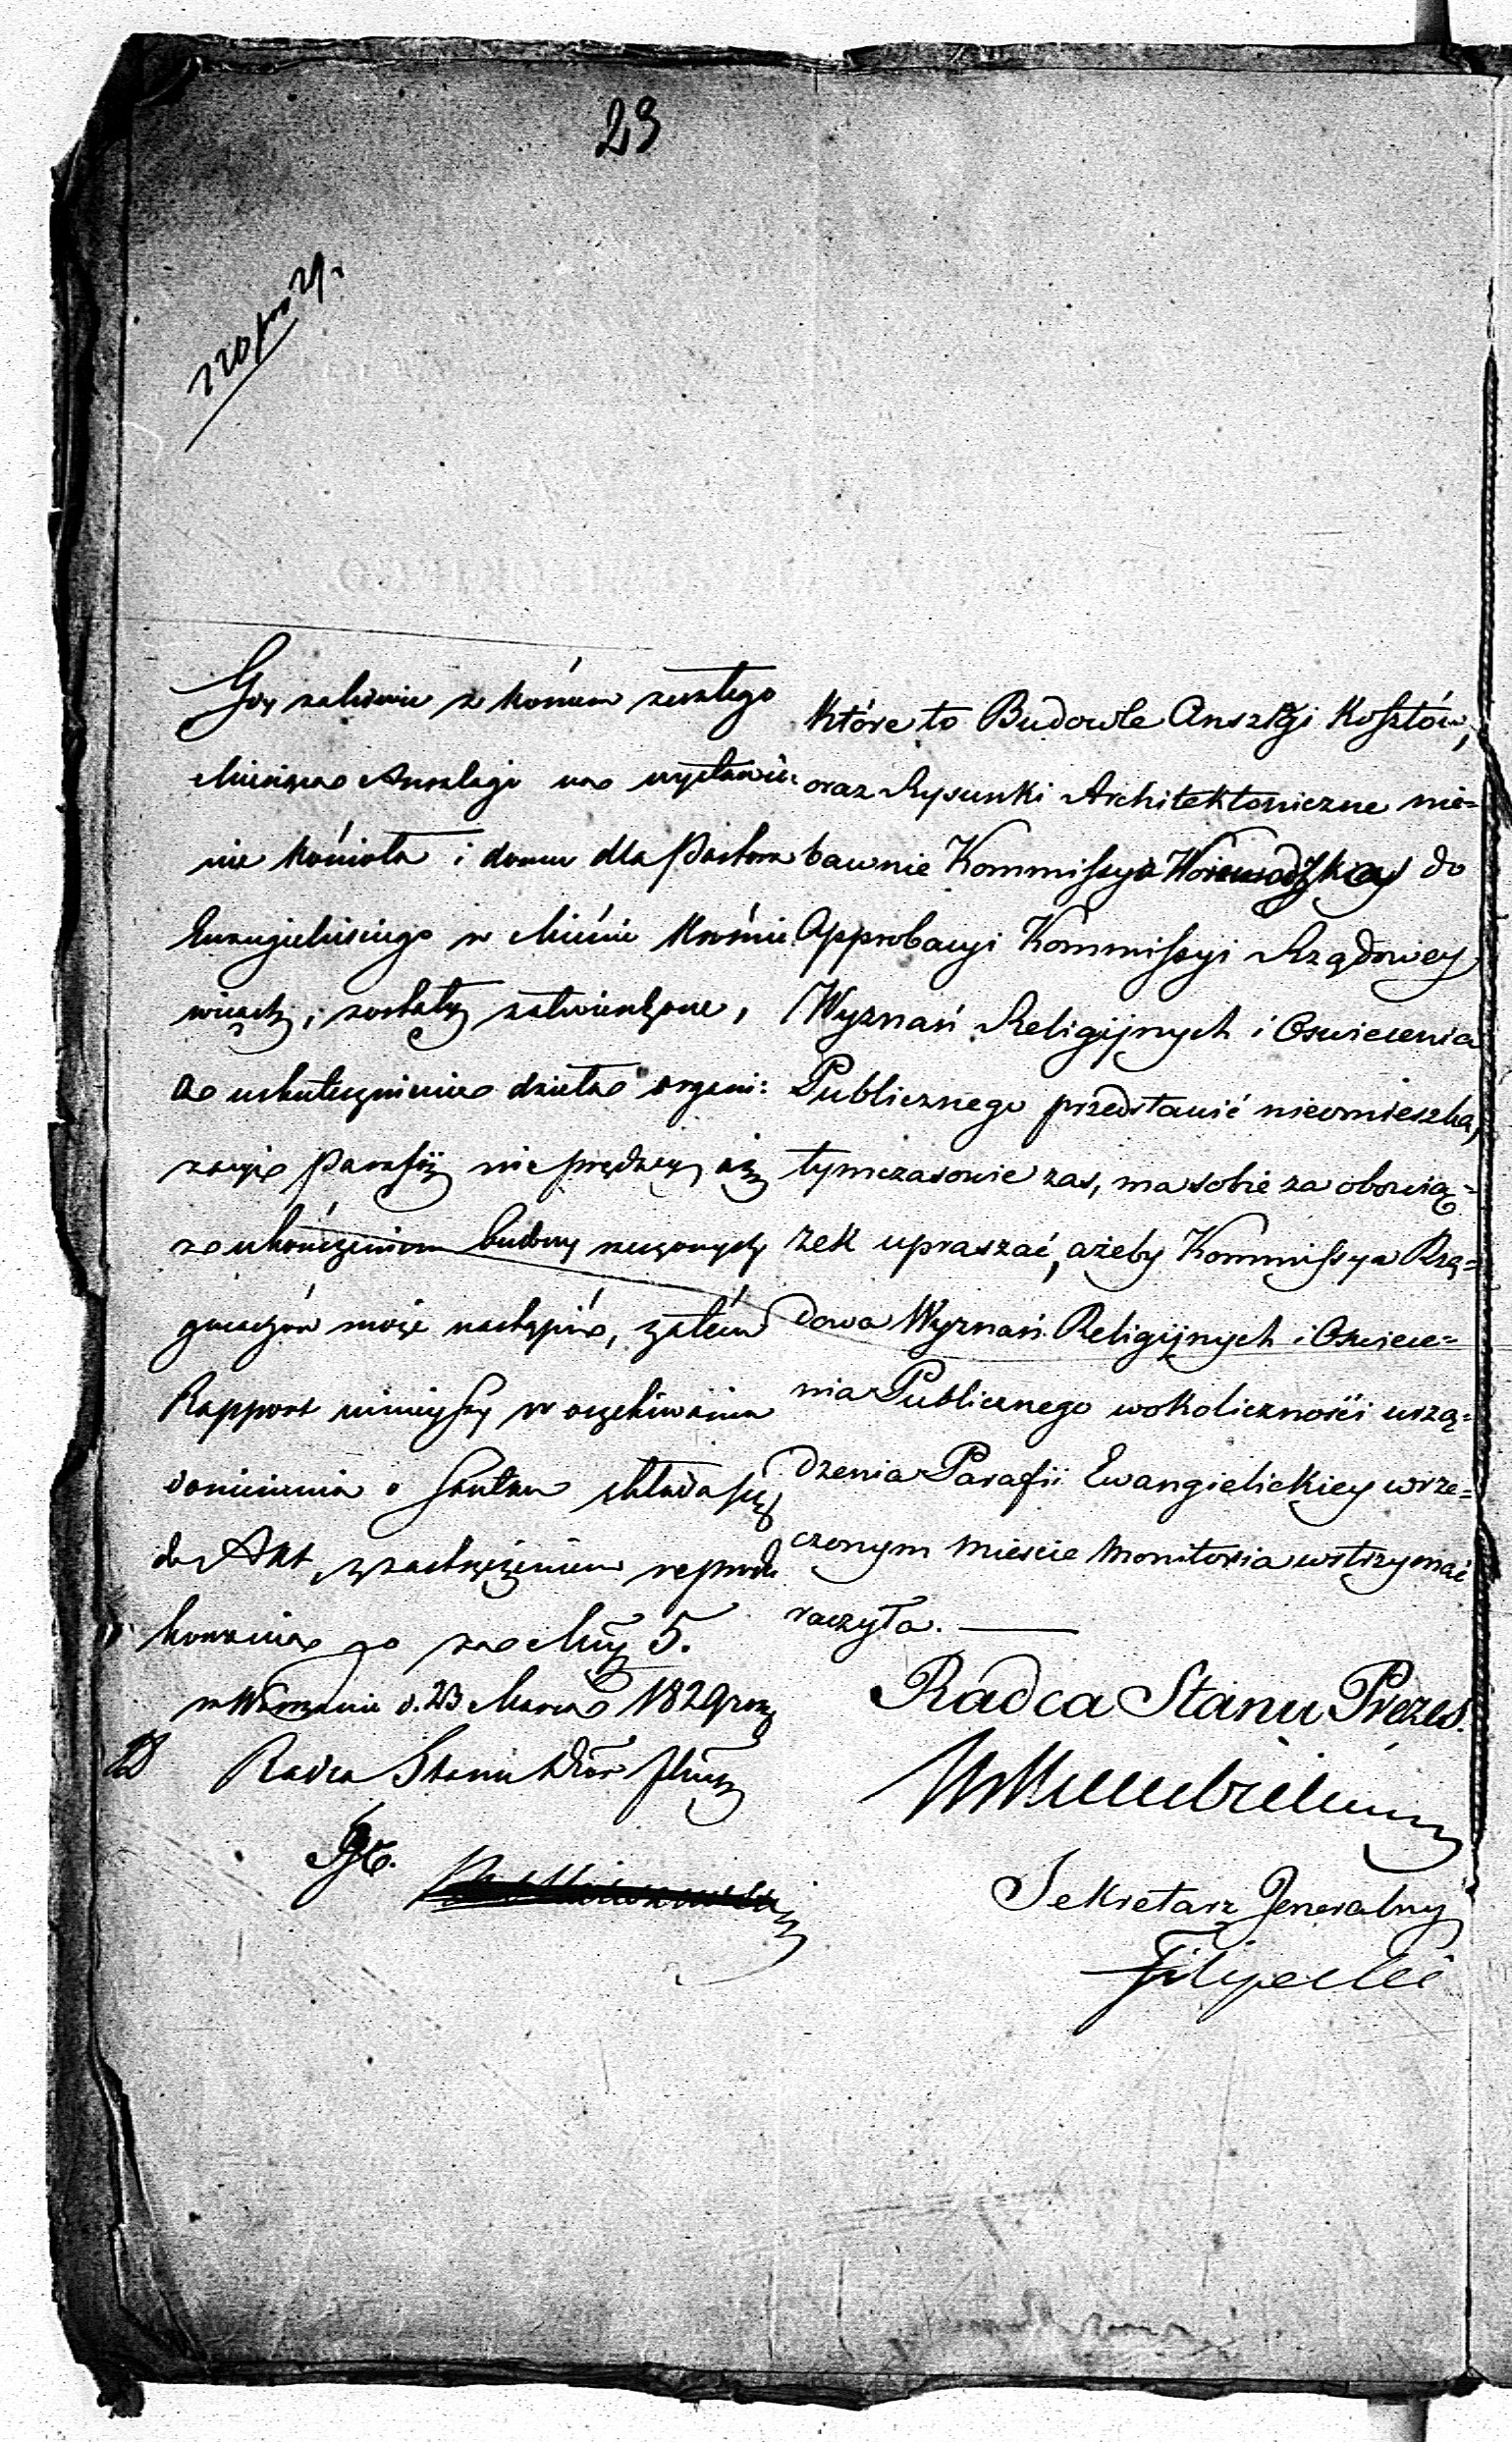 23
Gdy zaledwie z końcem zeszłego
Miesiąca Anszlagi na wystawie:
nie kościoła i domu dla Pastora
Ewangielickiego w Mieście
zostały zatwierdzone,
a uskutecznienie dzieła organi:
zacyi Parafii nieprędzey aż
za ukończeniem budowy rzeczonych
gmachów może nastąpić, zatém
Rapport ninieyszy w oczekiwaniu
doniesienia o skutku składa się
do Akt z zastrzeżeniem reprodu
kowania go za Mcy 5.
w Warszawie d. 23 Marca 1829 roku
Radca Stanu Dtor Jlny
które to Budowle Anszlagi Kosztów,
oraz Rysunki Architektoniczne nie=
bawnie Kommissya Woiewodzka do
Approbacyi Kommissyi Rządowey
Wyznań Religijnych i Oswiecenia
Publicznego przedstawić nieomieszka,
tymczasowie zas, ma sobie za obowią=
zek upraszać, ażeby Kommissya Rzą=
dowa Wyznań Religijnych i Oswiece=
nia Publicznego wokoliczności urzą=
dzenia Parafii Ewangielickiey wrze=
czonym Miescie Monitoria wstrzymać
raczyła.
Radca Stanu Prezes.
Sekretarz Jeneralny
Filipecki